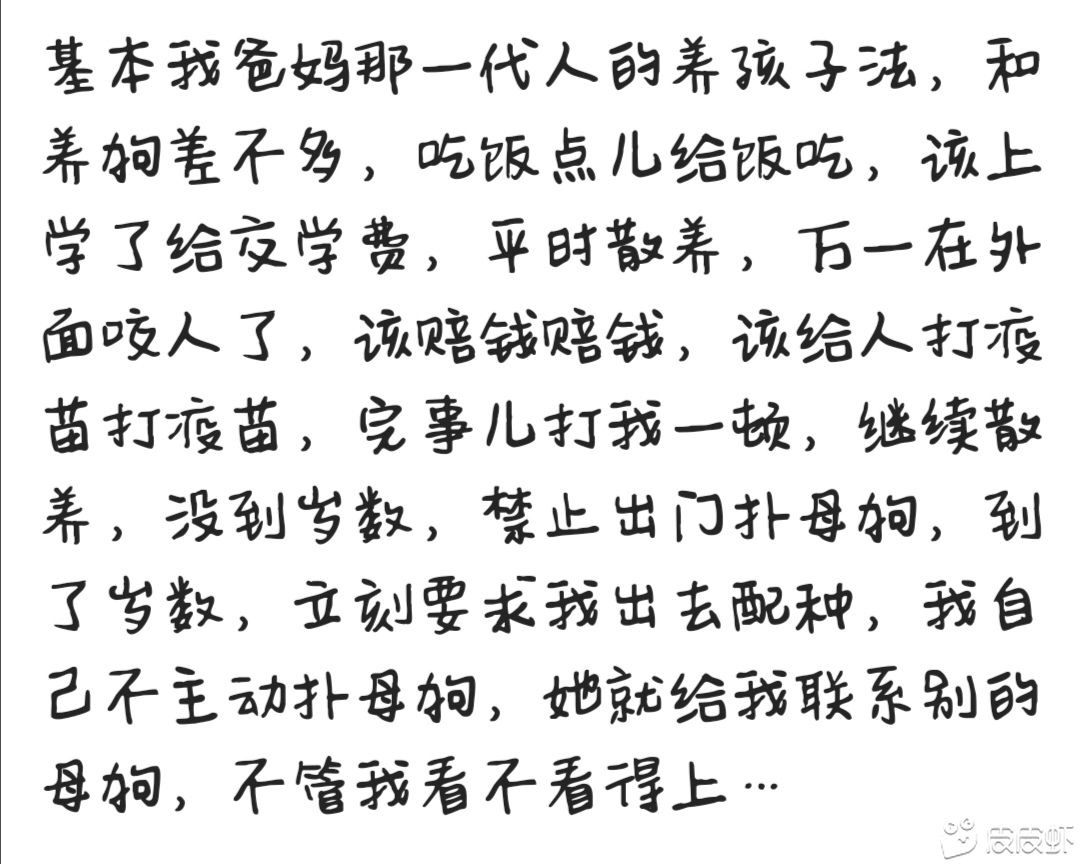 基本我爸妈那一代人的养孩子法，和
养狗差不多，吃饭点儿给饭吃，该上
学了给交学费，平时散养，万一在外
面咬人了，该赔钱赔钱，该给人打疫
苗打疫苗，完事儿打我一顿，继续散
养，没到岁数，禁止出门扑母狗，到
了岁数，立刻要求我出去配种，我自
己不主动扑母狗，她就给我联系别的
母狗，不管我看不看得上…
皮皮虾